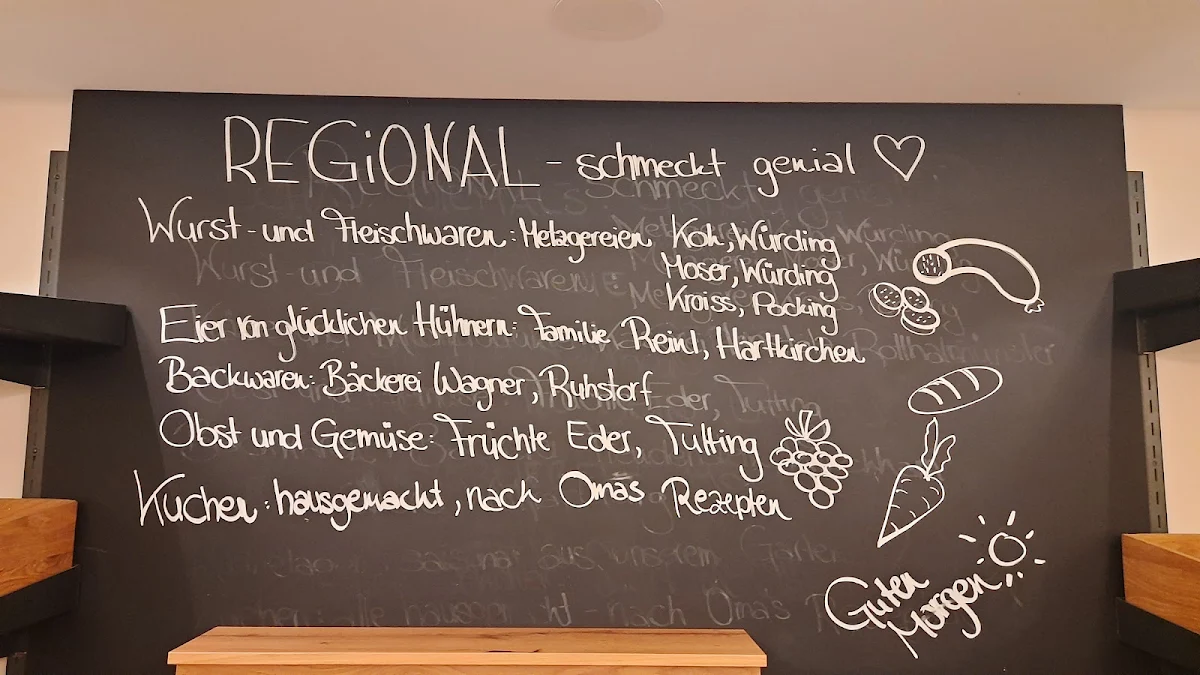 REGiONAL - schmeckt genial
Wurst- und Fleischwaren: Metzgereien Koh, Würding
Moser, Würding
Kroiss, Pocking
Eier von glücklichen Hühnern: Familie Reinl, Hartkirchen
Backwaren: Bäckerei Wagner, Ruhstorf
Obst und Gemüse: Früchte Eder, Tutting
Kuchen: hausgemacht, nach Omas Rezepten
Guten
Morgen